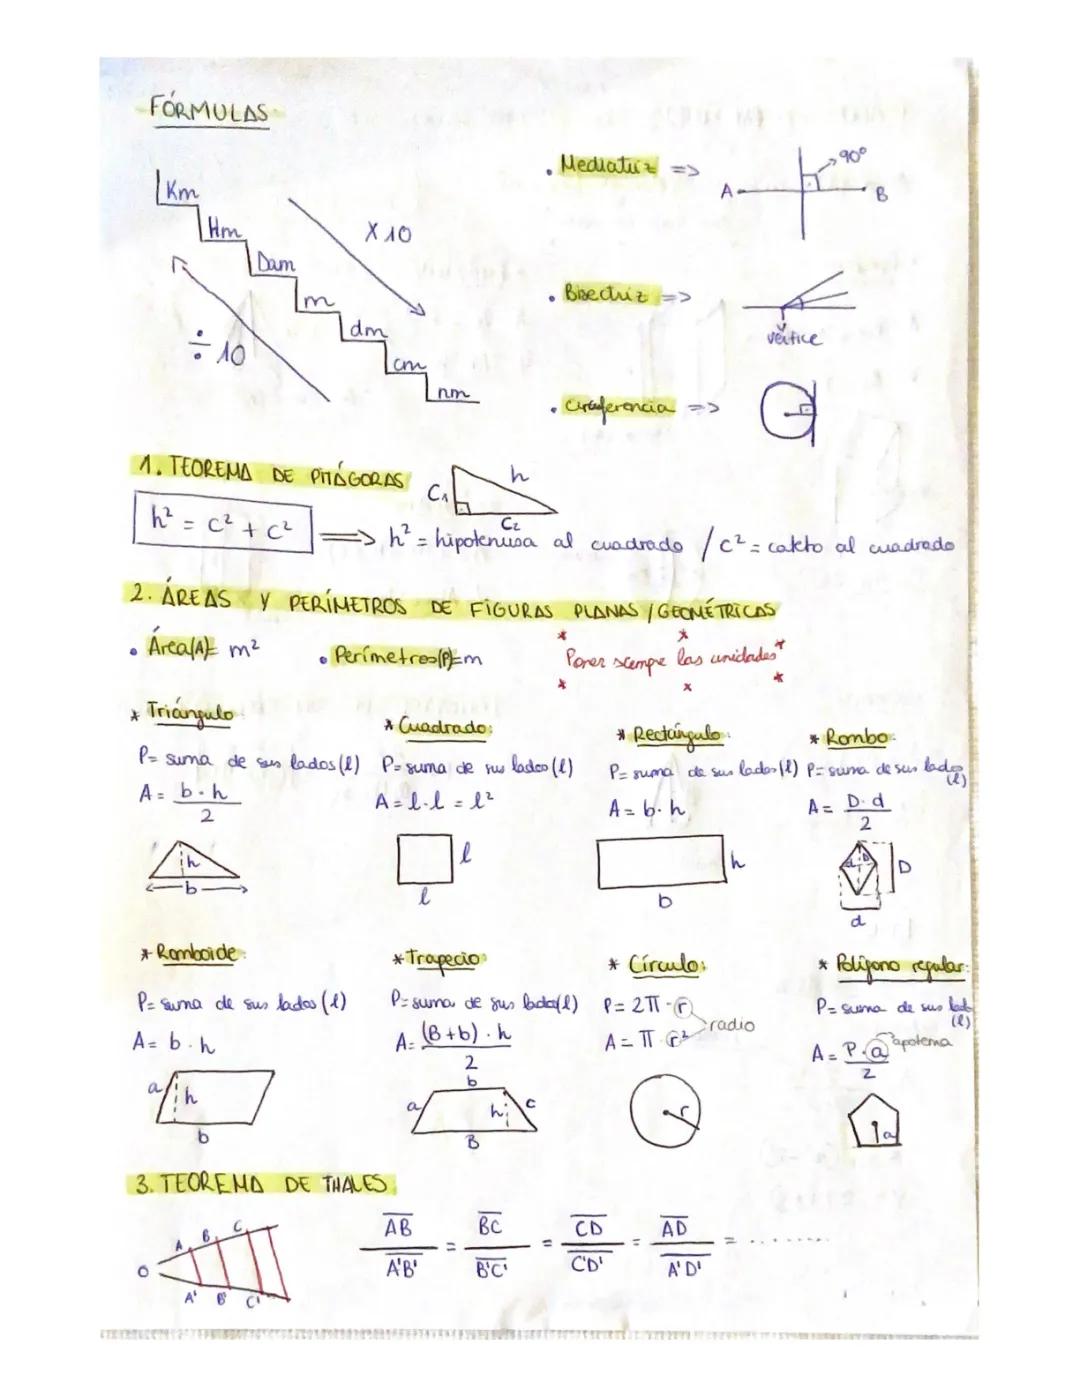 FÓRMULAS
Km
Hm
Dam
m
dm
cm
nm
X 10
÷ 10
• Mediatriz =>
A
B
90º
• Bisectriz =>
vértice
• Circuferencia =>
1. TEOREMA DE PITÁGORAS
C₁
h
C₂
h² = c² + c² => h² = hipotenusa al cuadrado / c² = cateto al cuadrado
2. ÁREAS Y PERÍMETROS DE FIGURAS PLANAS / GEOMÉTRICAS
• Área(A)= m²
• Perímetros(P)=m
* Poner siempre las unidades *
* Triángulo:
P= suma de sus lados (l)
A = b·h / 2
h
b
* Cuadrado:
P= suma de sus lados (l)
A = l·l = l²
l
l
* Rectángulo:
P= suma de sus lados (l)
A = b·h
h
b
* Rombo:
P= suma de sus lados (l)
A = D·d / 2
d
D
D
d
* Romboide:
P= suma de sus lados (l)
A = b·h
a
h
b
* Trapecio:
P= suma de sus lados (l)
A = (B+b)·h / 2
b
a
h
c
B
* Círculo:
P= 2π·r
A = π·r²
radio
r
* Polígono regular:
P= suma de sus lad
(l)
A = P·a / 2
apotema
a
3. TEOREMA DE THALES
O
A
B
C
A'
B'
C'
AB / A'B' = BC / B'C' = CD / C'D' = AD / A'D' = ........